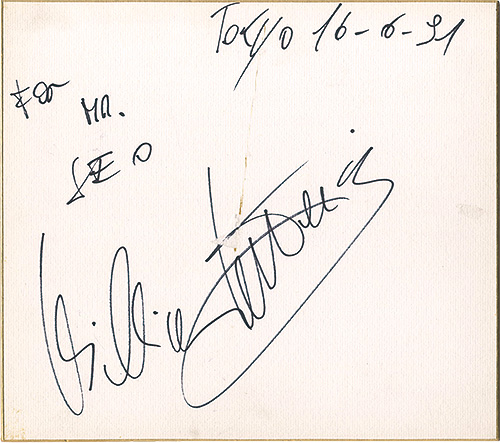 Tokyo 16-6-91
For
MR.
SEO
William